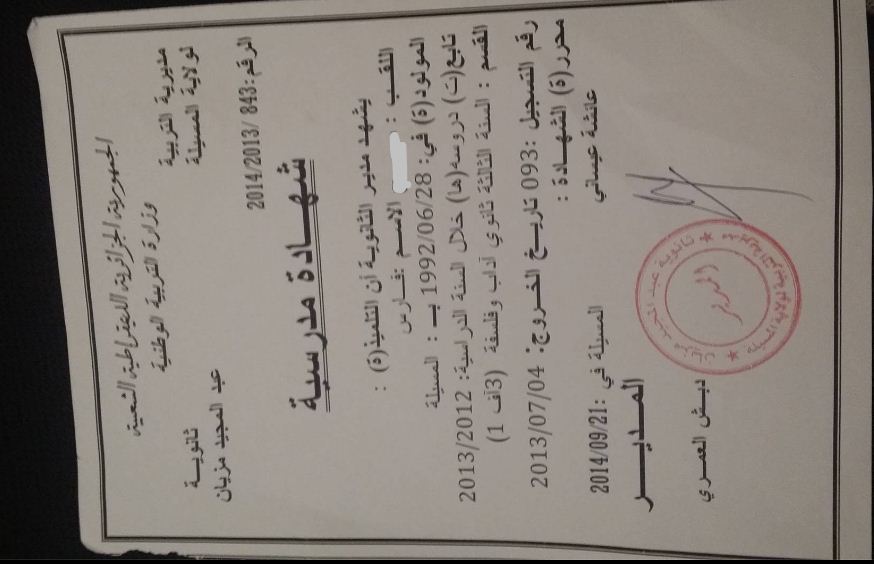 الجمهورية الجزائرية الديمقراطية الشعبية
وزارة التربية الوطنية
مديرية التربية
لولاية المسيلة
ثانوية
عبد المجيد مزيان
الرقم: 843 /2014/2013
شهادة مدرسية
يشهد مدير الثانوية أن التلميذ(ة) :
اللقب : الاسم :فارس
المولود(ة) في: 1992/06/28 بـ : المسيلة
تابع(ت) دروسه(ها) خلال السنة الدراسية: 2013/2012
القسم : السنة الثالثة ثانوي آداب وفلسفة (3أف 1)
رقم التسجيل :093 تاريخ الخروج: 2013/07/04
محرر(ة) الشهادة :
عائشة عيساني
المسيلة في :2014/09/21
المدير
دبش العمري
المدير